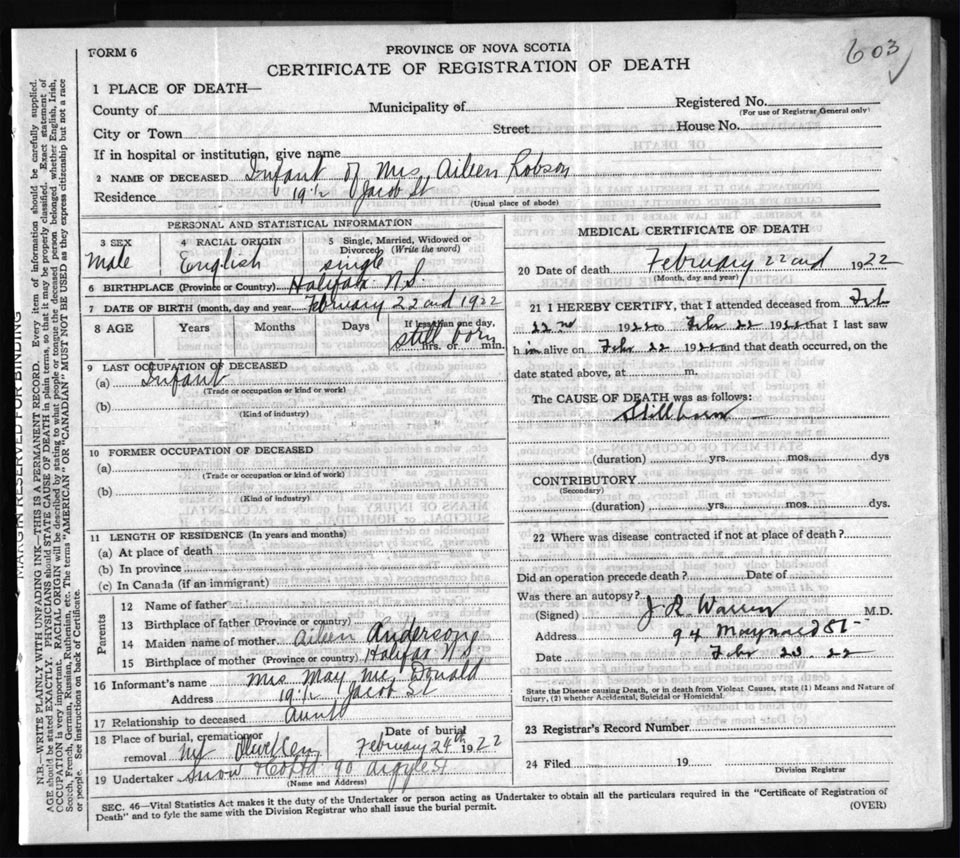 603
FORM 6
PROVINCE OF NOVA SCOTIA
CERTIFICATE OF REGISTRATION OF DEATH
1 PLACE OF DEATH—
County of Municipality of Registered No.
(For use of Registrar General only)
City or Town Street House No.
If in hospital or institution, give name
2 NAME OF DECEASED Infant of Mrs Aileen Robson
Residence 19½ Jacob St
(Usual place of abode)
PERSONAL AND STATISTICAL INFORMATION
3 SEX 4 RACIAL ORIGIN 5 Single, Married, Widowed or Divorced (Write the word)
Male English single
6 BIRTHPLACE (Province or Country) Halifax N.S.
7 DATE OF BIRTH (month, day and year) February 22nd 1922
8 AGE Years Months Days If less than one day, hrs. or min.
still born
9 LAST OCCUPATION OF DECEASED
(a) Infant
(Trade or occupation or kind or work)
(b)
(Kind of industry)
10 FORMER OCCUPATION OF DECEASED
(a)
(Trade or occupation or kind of work)
(b)
(Kind of industry)
11 LENGTH OF RESIDENCE (In years and months)
(a) At place of death
(b) In province
(c) In Canada (if an immigrant)
Parents
12 Name of father
13 Birthplace of father (Province or country)
14 Maiden name of mother Aileen Anderson
15 Birthplace of mother (Province or country) Halifax N.S
16 Informant's name Mrs May Mc Donald
Address 19½ Jacob St
17 Relationship to deceased Aunt
18 Place of burial, cremation or removal Mt Date of burial February 24th 1922
19 Undertaker Snow & Co Ltd 90 Argyle St
(Name and Address)
MEDICAL CERTIFICATE OF DEATH
20 Date of death February 22nd 1922
(Month, day and year)
21 I HEREBY CERTIFY, that I attended deceased from Feb
22nd 1922 to Febr 22 1922 that I last saw
him alive on Febr 22 1922 and that death occurred, on the
date stated above, at m.
The CAUSE OF DEATH was as follows:
Stillborn
(duration) yrs. mos. dys
CONTRIBUTORY
(Secondary)
(duration) yrs. mos. dys.
22 Where was disease contracted if not at place of death?
Did an operation precede death? Date of
Was there an autopsy?
(Signed) J R Warren M.D.
Address 94 Maynard St
Date Febr 23. 22
State the Disease causing Death, or in death from Violent Causes, state (1) Means and Nature of
Injury, (2) whether Accidental, Suicidal or Homicidal.
23 Registrar's Record Number
24 Filed 19
Division Registrar
SEC. 46—Vital Statistics Act makes it the duty of the Undertaker or person acting as Undertaker to obtain all the particulars required in the "Certificate of Registration of
Death" and to fyle the same with the Division Registrar who shall issue the burial permit. (OVER)
MARGIN RESERVED FOR BINDING
N.B.—WRITE PLAINLY WITH UNFADING INK—THIS IS A PERMANENT RECORD. Every item of information should be carefully supplied.
AGE should be stated EXACTLY. PHYSICIANS should STATE CAUSE OF DEATH in plain terms, so that it may be properly classified. Exact statement of
OCCUPATION is very important. RACIAL ORIGIN will be described by stating to what people or tongue the deceased person belonged whether English, Irish,
Scotch, French, German, Russian, Ruthenian, etc. The terms "AMERICAN" OR "CANADIAN" MUST NOT BE USED as they express citizenship but not a race
or people. See instructions on back of Certificate.